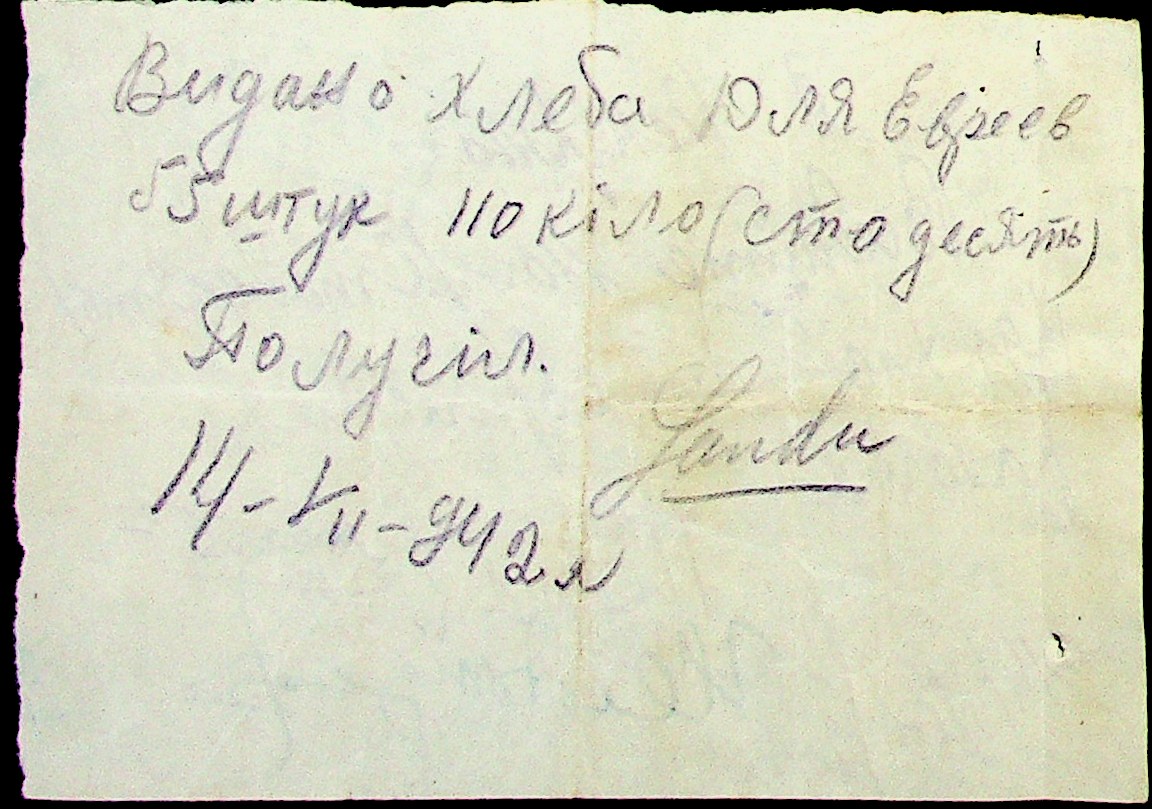 Видано хлеба Для Евреев
55 штук 110 кіло (сто десять)
Получіл.
Sandu
14-VII-942 л